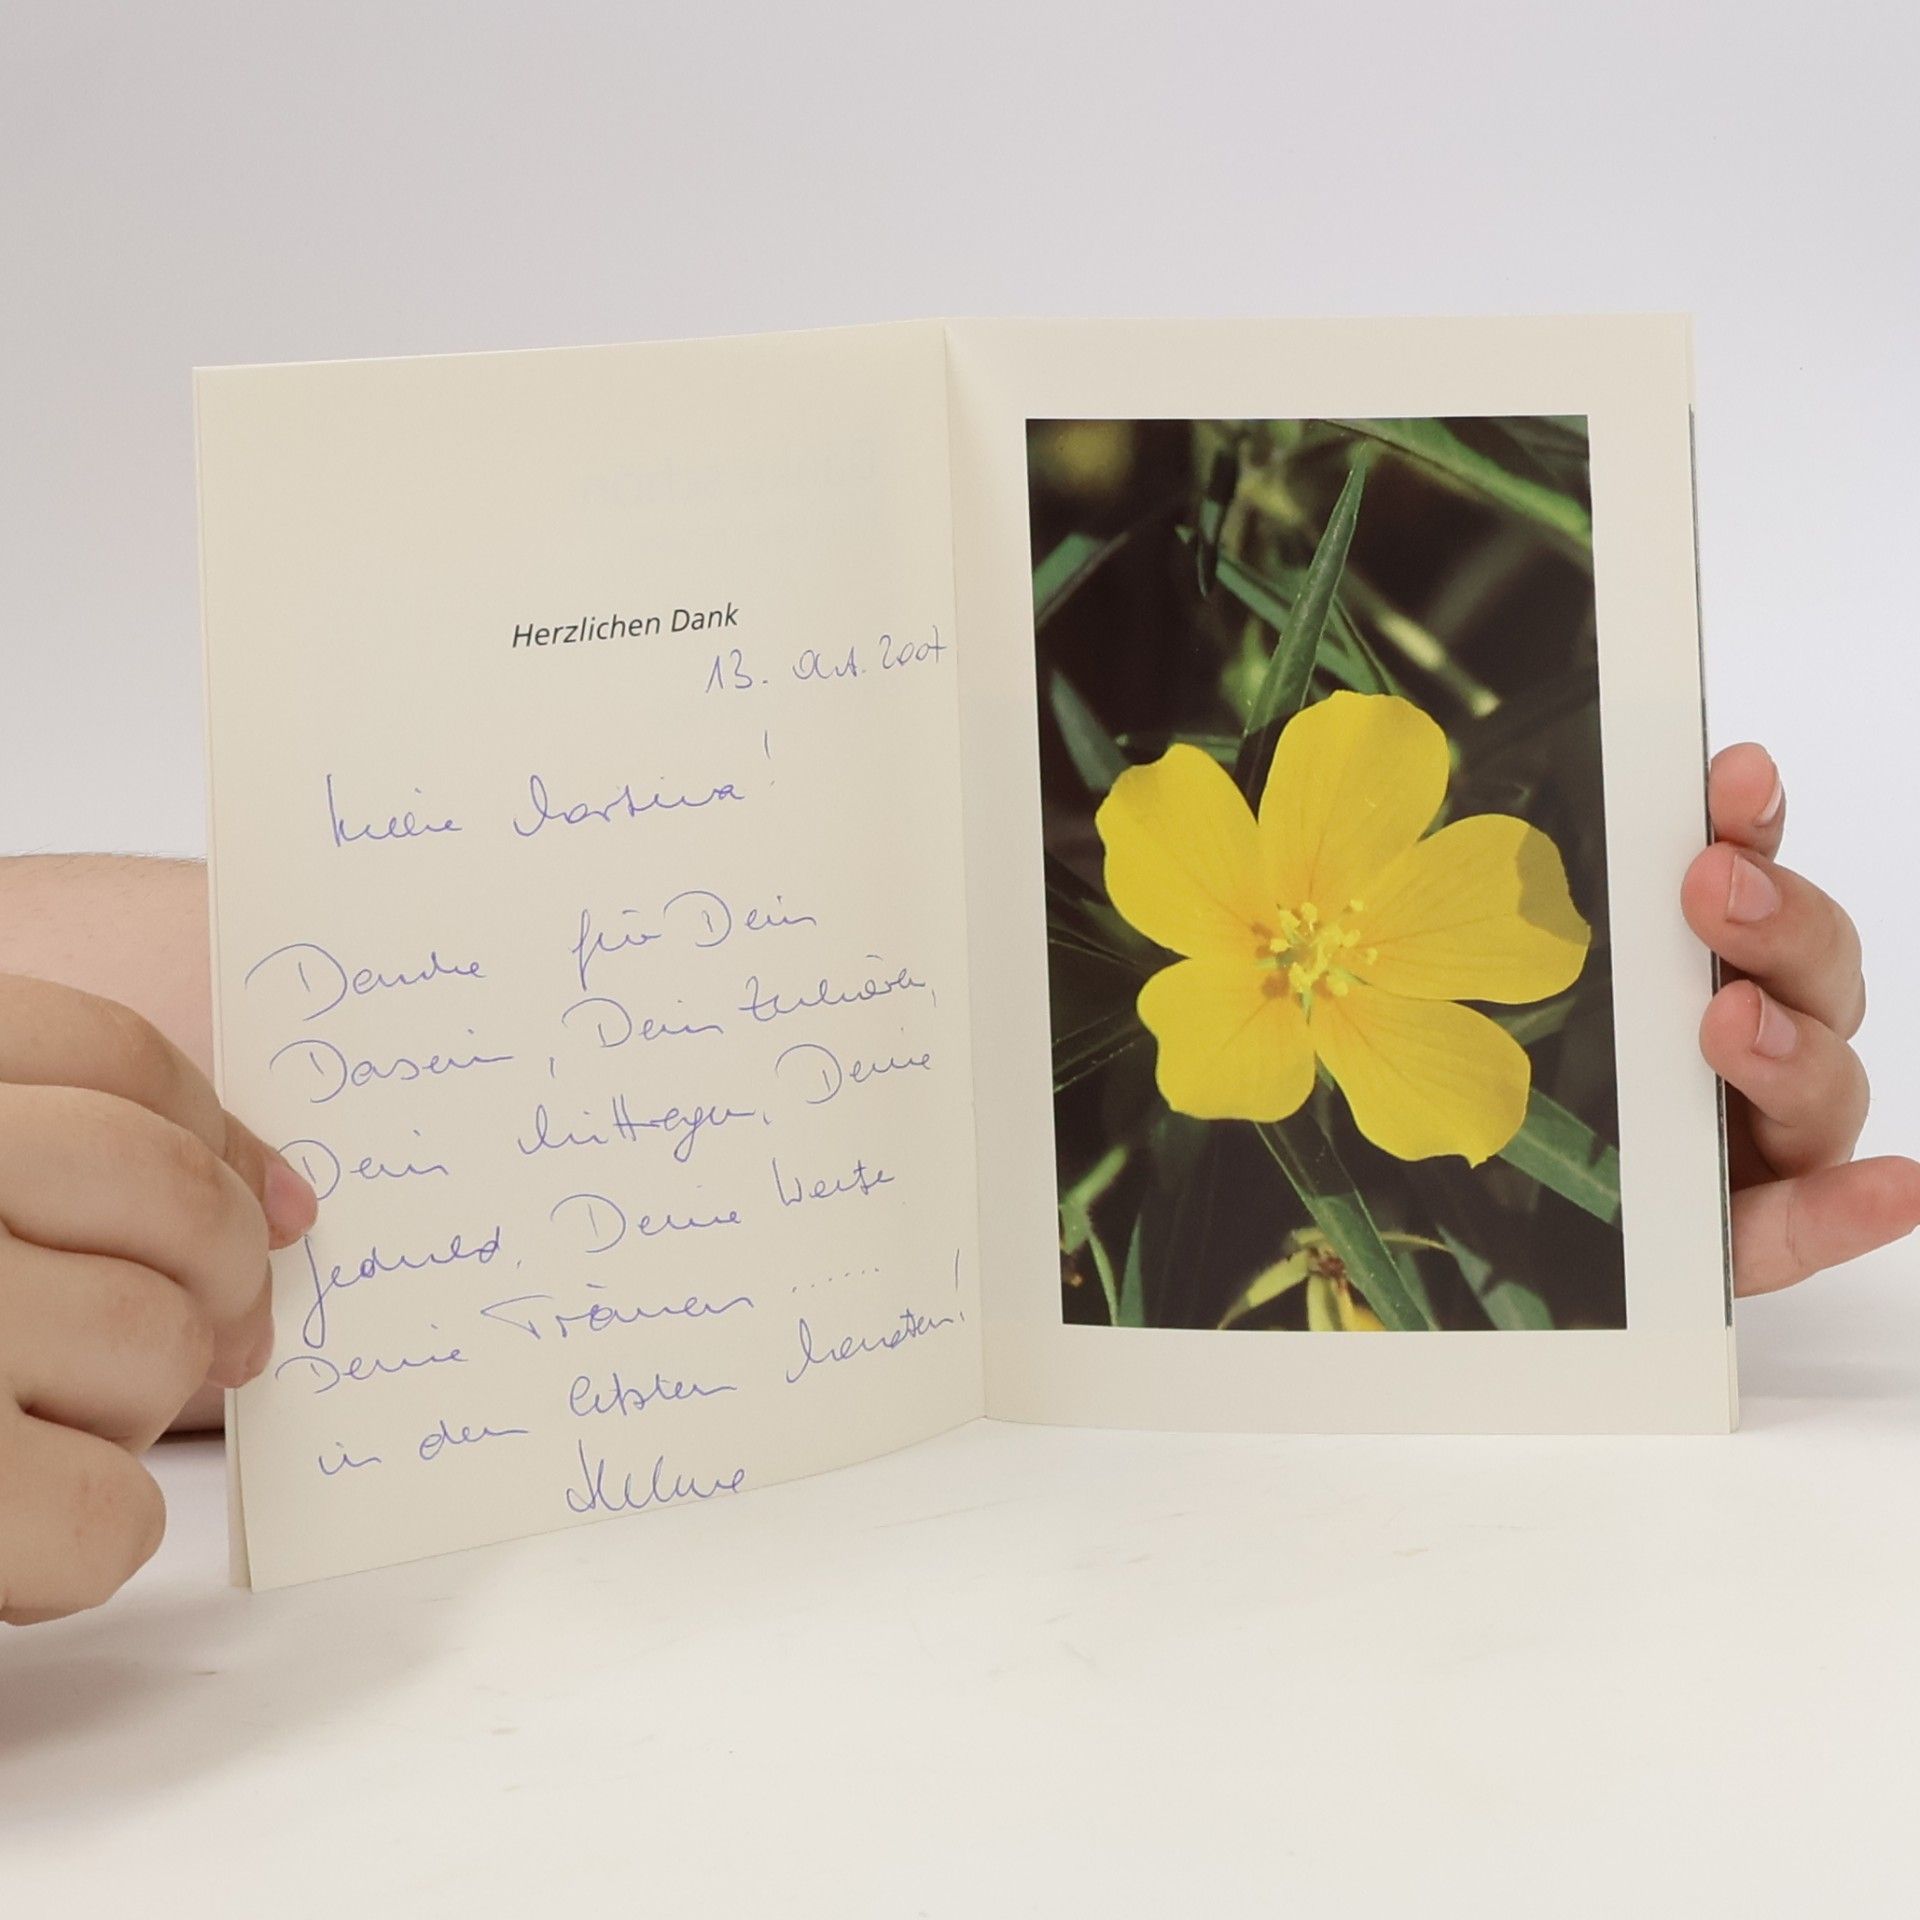 Herzlichen Dank
13. Okt. 2007
Martina!
Danke für Dein
Dasein, Dein Zuhören,
Dein Mittragen, Deine
Geduld, Deine Worte
Deine Tränen ......
in den letzten Monaten!